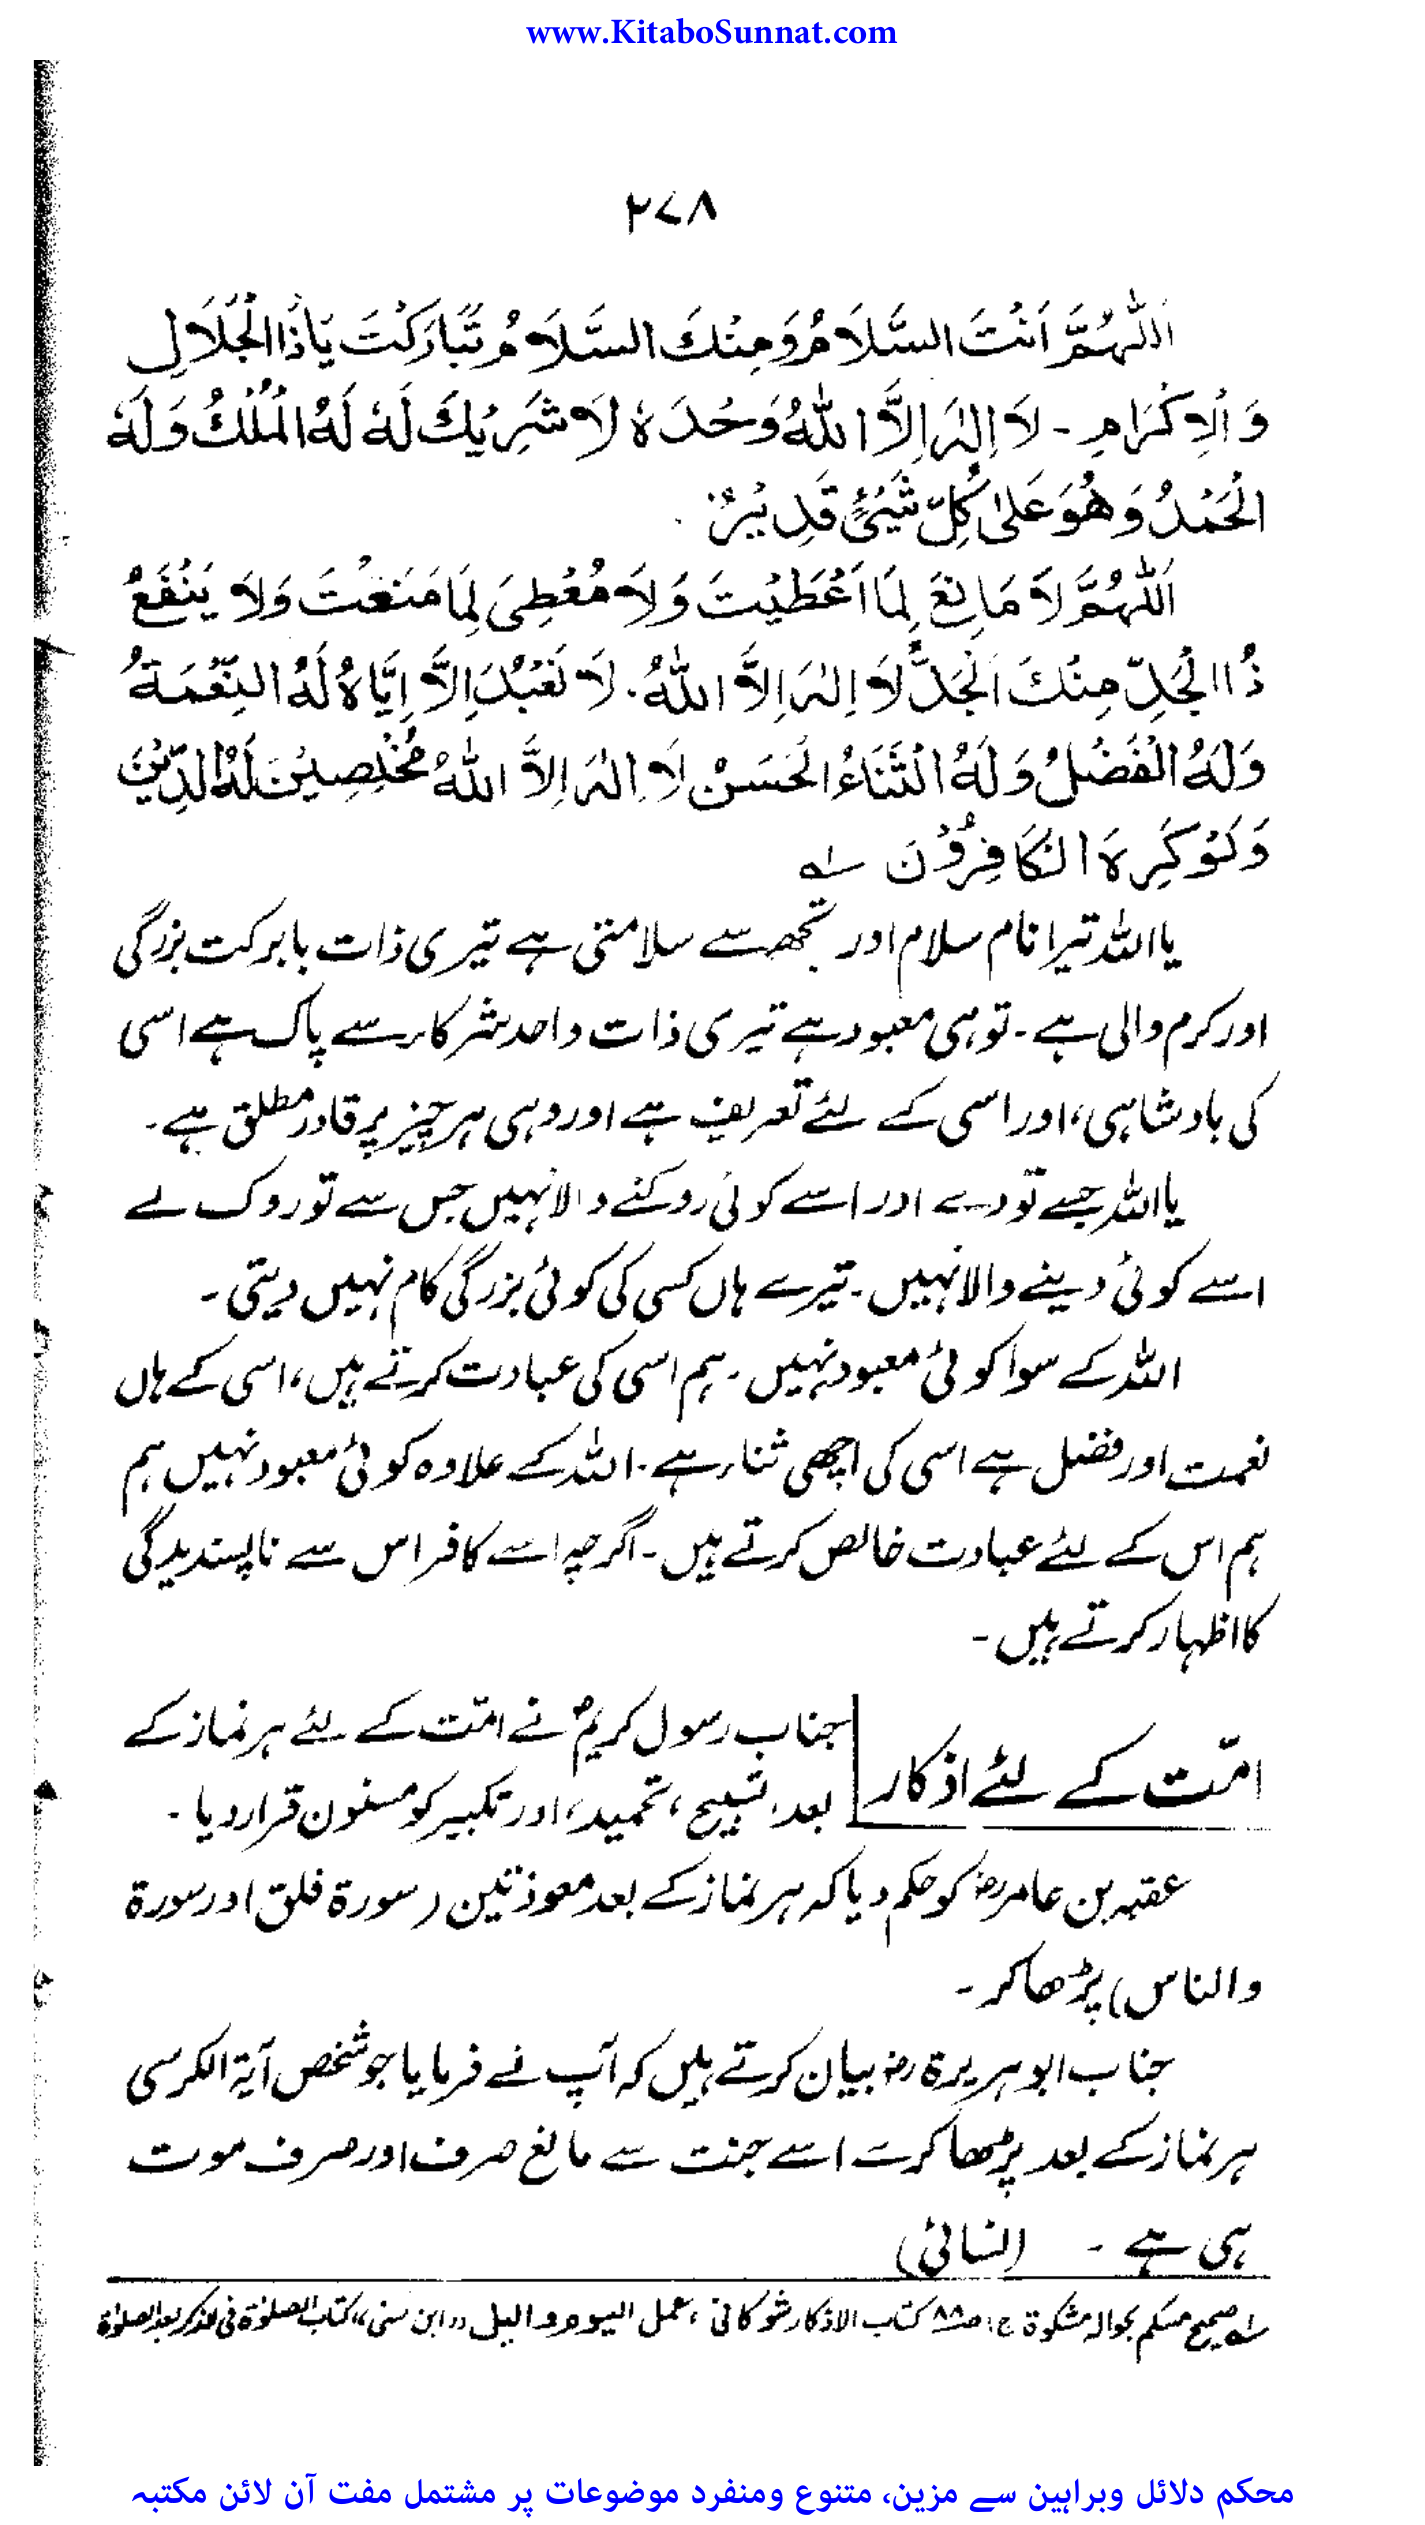 www.KitaboSunnat.com
۲۷۸
اَللّٰهُمَّ اَنْتَ السَّلَامُ وَمِنْكَ السَّلَامُ تَبَارَكْتَ يَاذَا الْجَلَالِ
وَالْاِكْرَامِ - لَا اِلٰهَ اِلَّا اللّٰهُ وَحْدَهٗ لَا شَرِيْكَ لَهٗ لَهُ الْمُلْكُ وَلَهُ
الْحَمْدُ وَهُوَ عَلٰى كُلِّ شَيْئٍ قَدِيْرٌ
اَللّٰهُمَّ لَا مَانِعَ لِمَا اَعْطَيْتَ وَلَا مُعْطِىَ لِمَا مَنَعْتَ وَلَا يَنْفَعُ
ذَا الْجَدِّ مِنْكَ الْجَدُّ لَا اِلٰهَ اِلَّا اللّٰهُ. لَا نَعْبُدُ اِلَّا اِيَّاهُ لَهُ النِّعْمَةُ
وَلَهُ الْفَضْلُ وَلَهُ الثَّنَاءُ الْحَسَنُ لَا اِلٰهَ اِلَّا اللّٰهُ مُخْلِصِيْنَ لَهُ الدِّيْنَ
وَلَوْ كَرِهَ الْكَافِرُوْنَ ؎۱
یا اللہ تیرا نام سلام اور تجھ سے سلامتی ہے تیری ذات بابرکت بزرگی
اور کرم والی ہے۔ توہی معبود ہے تیری ذات واحد شرکاء سے پاک ہے اسی
کی بادشاہی، اور اسی کے لئے تعریف ہے اور وہی ہر چیز پر قادر مطلق ہے۔
یا اللہ جسے تو دے اور اسے کوئی روکنے والا نہیں جس سے تو روک لے
اسے کوئی دینے والا نہیں۔ تیرے ہاں کسی کی کوئی بزرگی کام نہیں دیتی۔
اللہ کے سوا کوئی معبود نہیں۔ ہم اسی کی عبادت کرتے ہیں، اسی کے ہاں
نعمت اور فضل ہے اسی کی اچھی ثناء ہے۔ اللہ کے علاوہ کوئی معبود نہیں ہم
ہم اس کے لئے عبادت خالص کرتے ہیں۔ اگرچہ اسے کافر اس سے ناپسندیدگی
کا اظہار کرتے ہیں۔
امّت کے لئے اذکار
جناب رسول کریمؐ نے امّت کے لئے ہر نماز کے
بعد، تسبیح، تحمید، اور تکبیر کو مسنون قرار دیا۔
عقبہ بن عامرؓ کو حکم دیا کہ ہر نماز کے بعد معوذتین (سورۃ فلق اور سورۃ
والناس) پڑھا کر۔
جناب ابوہریرۃؓ بیان کرتے ہیں کہ آپ نے فرمایا جو شخص آیۃ الکرسی
ہر نماز کے بعد پڑھا کرے اسے جنت سے مانع صرف اور صرف موت
ہی ہے۔ (نسائی)
؎۱ صحیح مسلم بحوالہ مشکوۃ ج۱ ص۸۸ کتاب الاذکار شوکانی، عمل الیوم والیل ،،ابن سنی،، کتاب الصلوٰۃ فی الذکر بعد الصلوٰۃ
محکم دلائل وبراہین سے مزین، متنوع ومنفرد موضوعات پر مشتمل مفت آن لائن مکتبہ